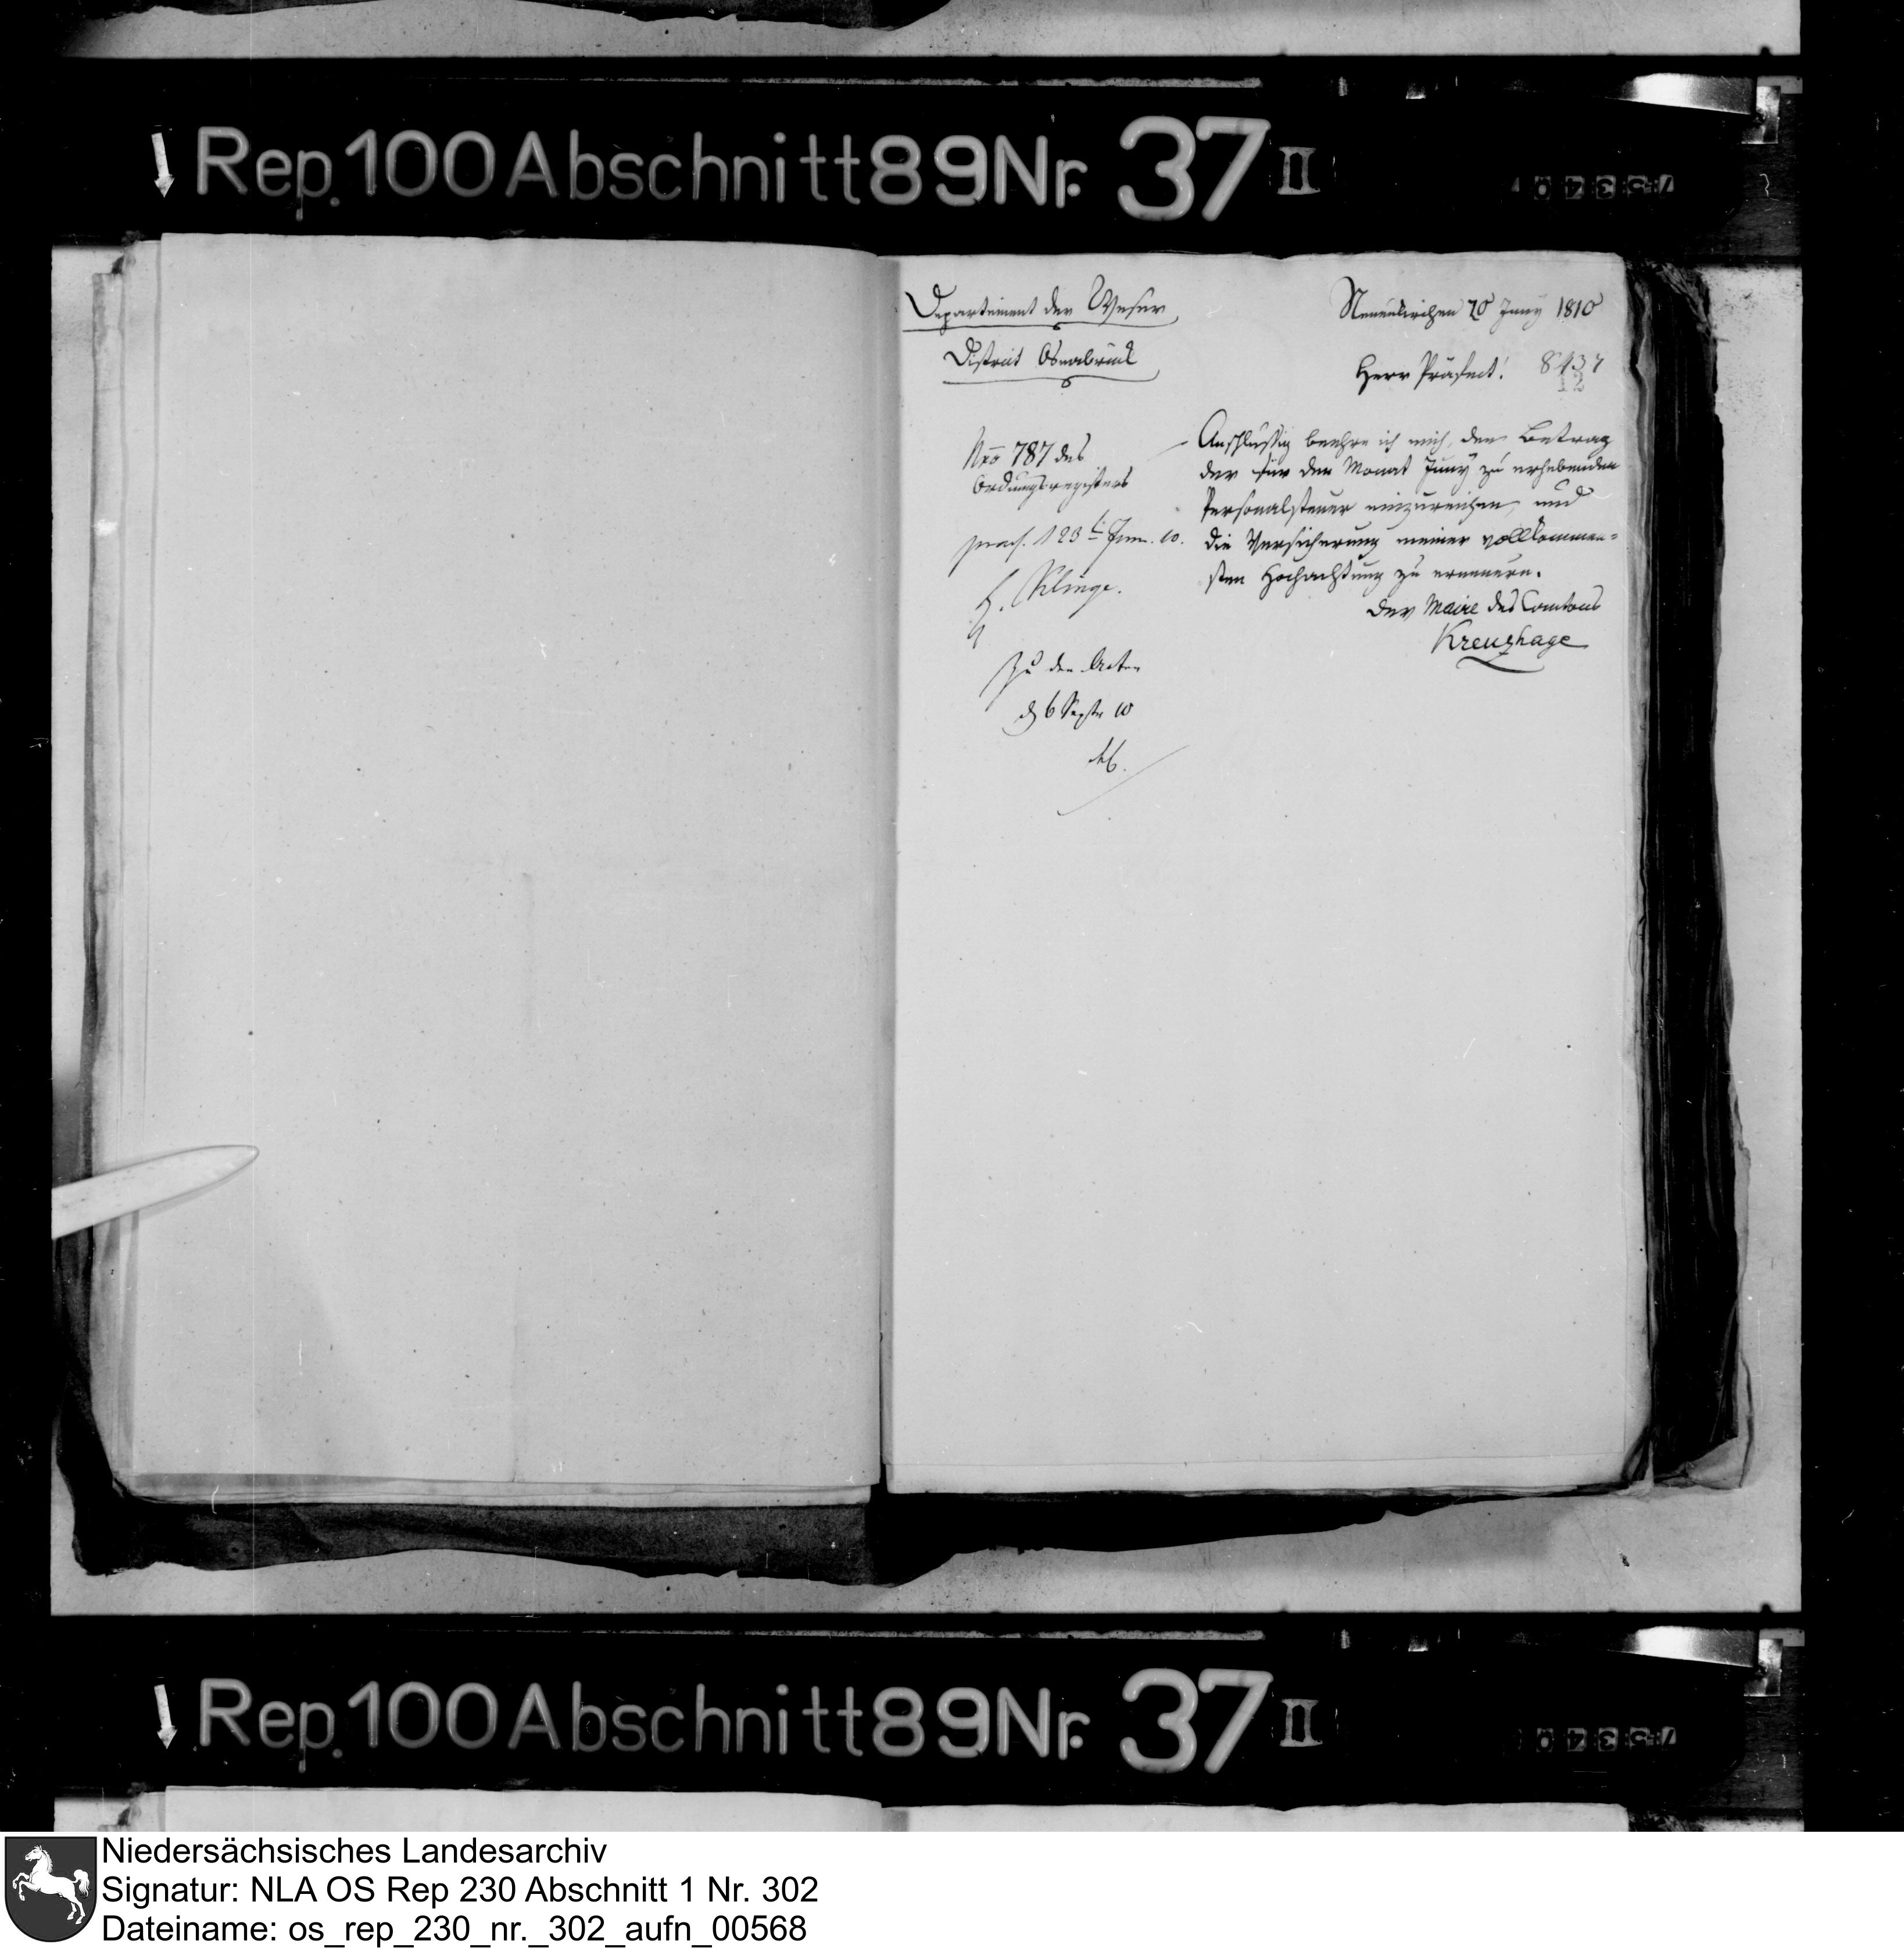 Rep. 100 Abschnitt 89 Nr. 37 II
Departement der Weser
District Osnabrück
Neuenkirchen 20 Juny 1810
Herr Präfect! 8437
12
Nro 787 des
Ordnungsregisters
praes. d 23t Jun. 10.
Klinge.
Zu den Acten
d 6 Septr 10
Anschlüßig beehre ich mich, den Betrag
der für den Monat Juny zu erhebenden
Personalsteuer einzureichen, und
die Versicherung meiner vollkommen=
sten Hochachtung zu erneuern.
Der Maire des Cantons
Kreuzhage
Rep. 100 Abschnitt 89 Nr. 37 II
Niedersächsisches Landesarchiv
Signatur: NLA OS Rep 230 Abschnitt 1 Nr. 302
Dateiname: os_rep_230_nr._302_aufn_00568